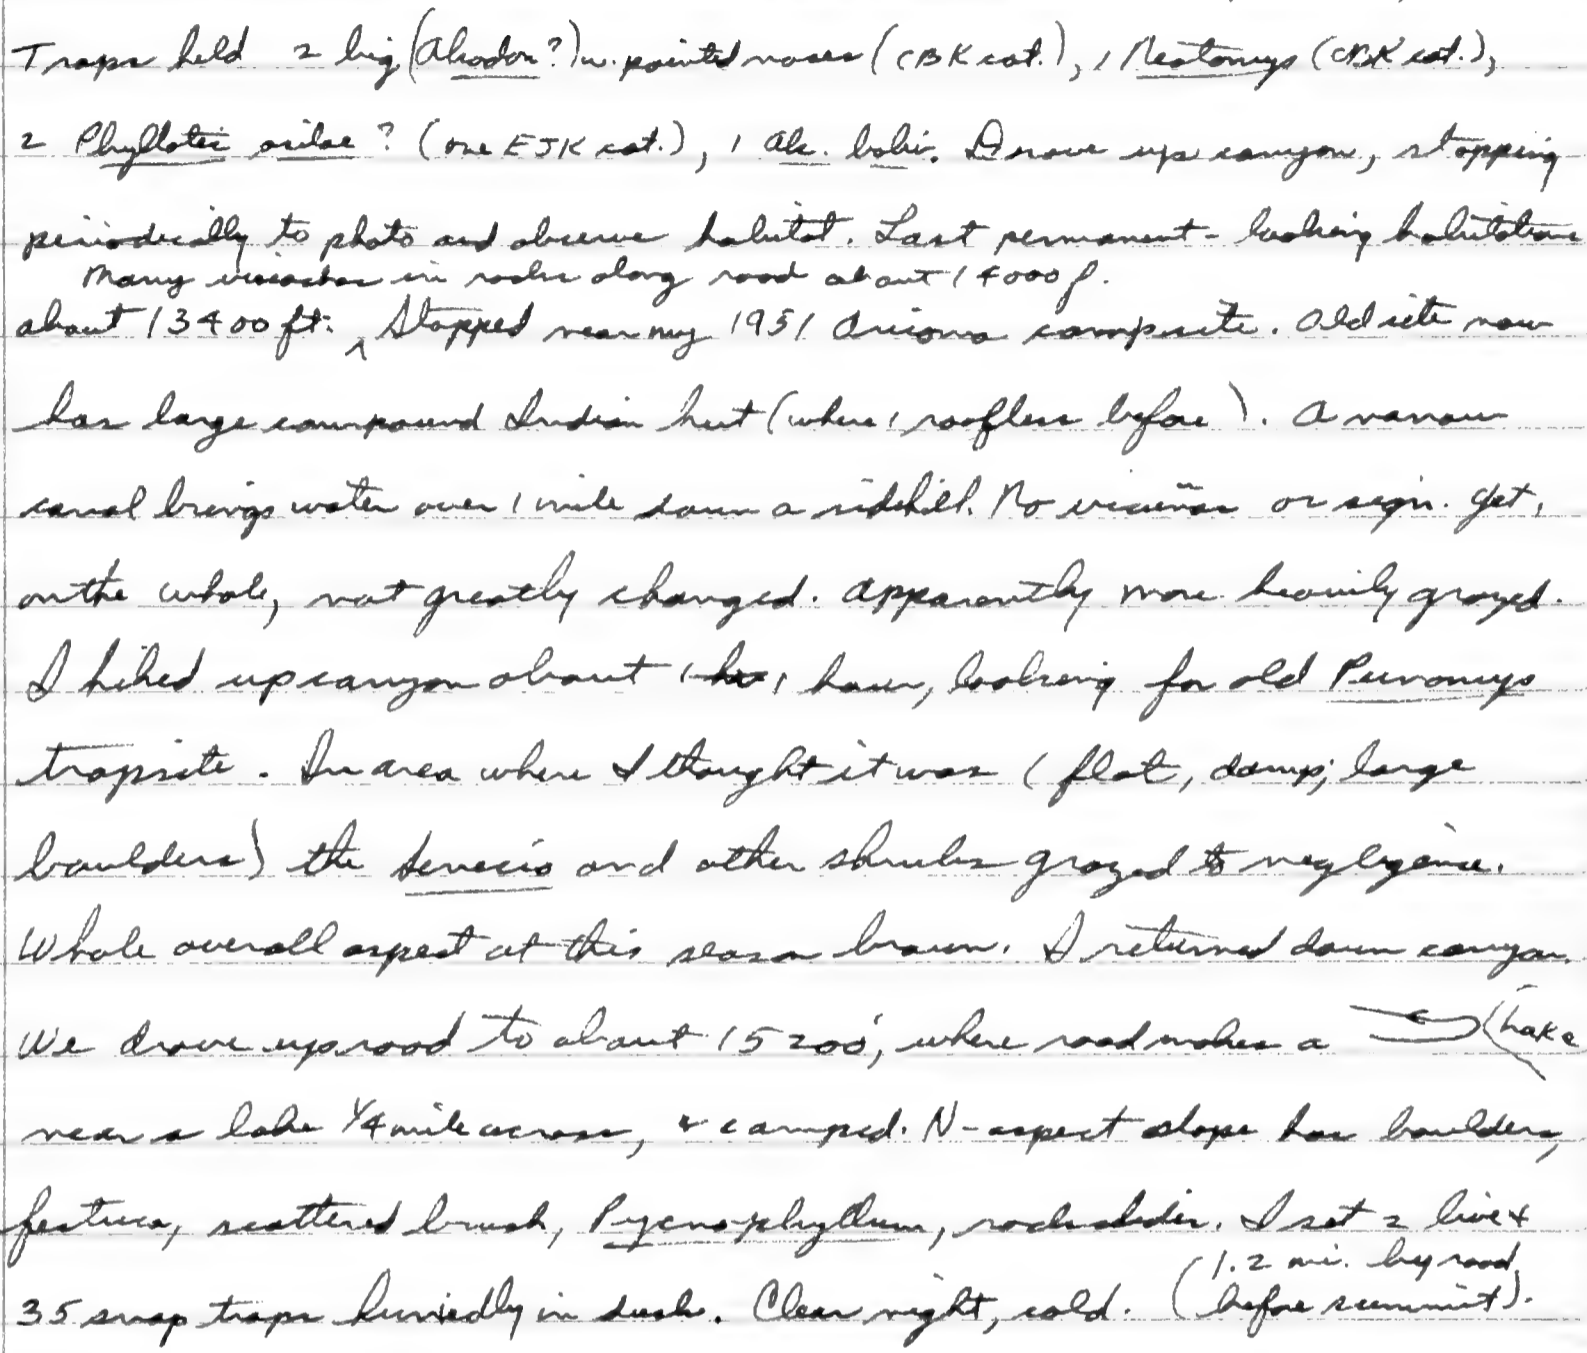 Traps held 2 big (Akodon?) w. pointed noses (CBK cat.), 1 Neotomys (CBK cat.),
2 Phyllotis osilae? (one EJK cat.), 1 Ak. boliv. Drove up canyon, stopping
periodically to photo and observe habitat. Last permanent-looking habitations
Many viscachas in rocks along road about 14000 f.
about 13400 ft. ^ Stopped near my 1951 campsite. Old site now
has large compound Indian hut (where 1 roofless before). A narrow
canal brings water over 1 mile down a sidehill. No vicuñas or sign. Yet,
on the whole, not greatly changed. Apparently more heavily grazed.
I hiked up canyon about 1 hour, looking for old Punomys
trapsite. In area where I thought it was (flat, damp; large
boulders) the Senecio and other shrubs grazed to negligence.
Whole overall aspect at this season brown. I returned down canyon.
We drove up road to about 15200', where road makes a (Lake
near a lake 1/4 mile across, & camped. N-aspect slope has boulders,
festuca, scattered brush, Pycnophyllum, rockslides. I set 2 live &
(1.2 mi. by road
35 snap traps hurriedly in dusk. Clear night, cold. before summit).